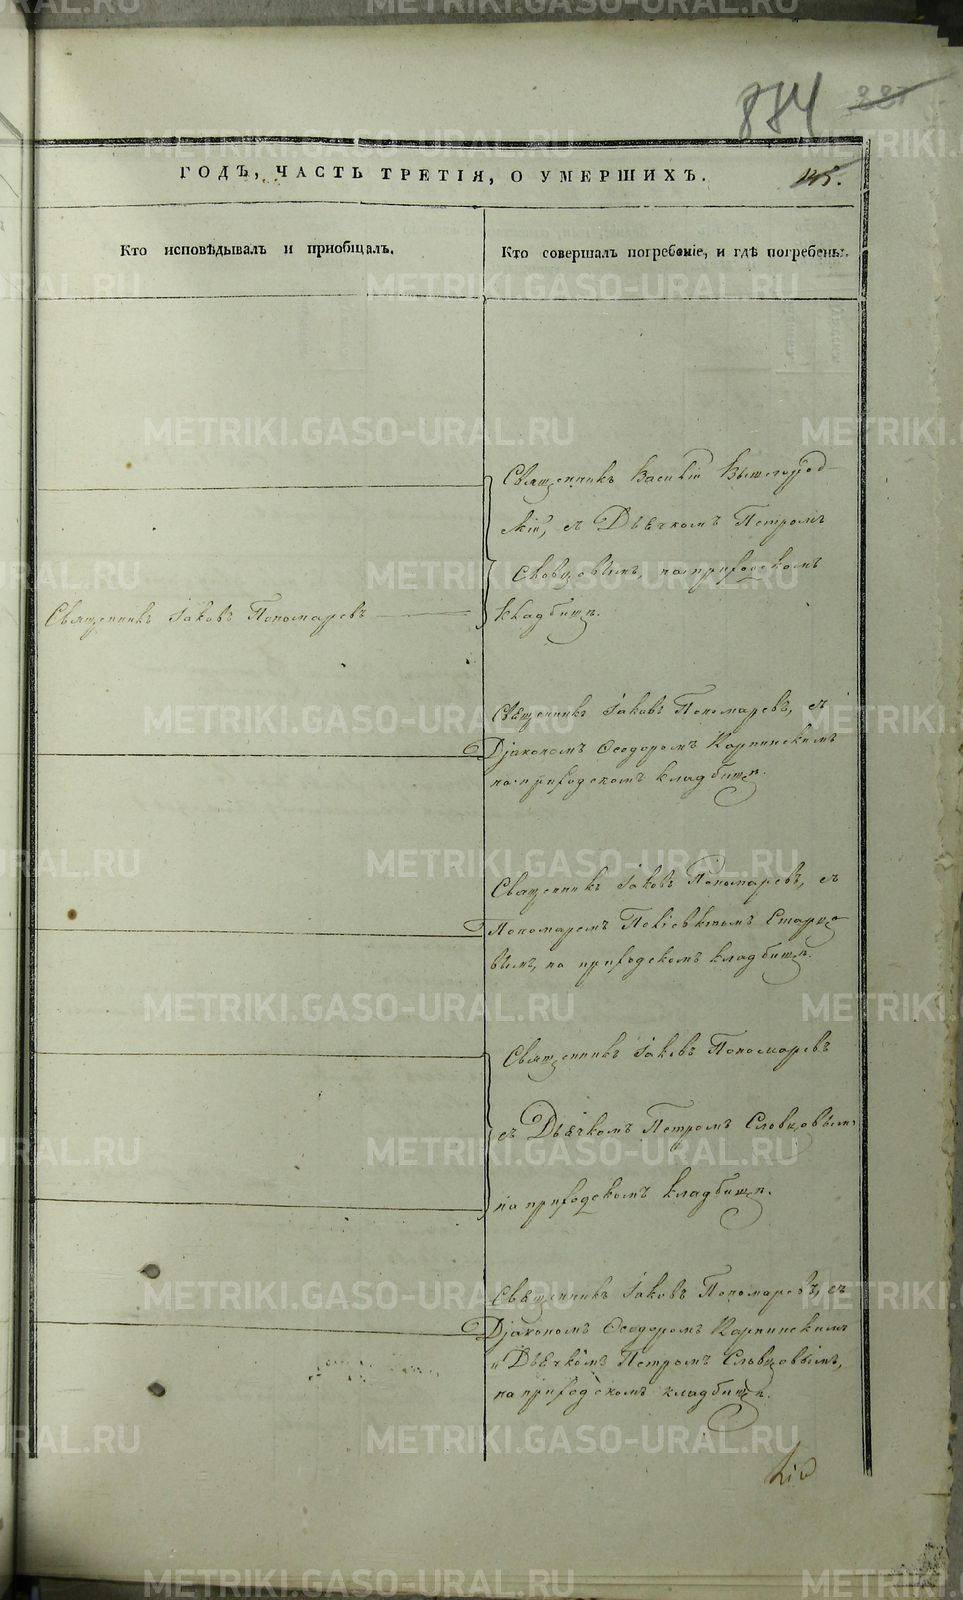 884 221
ГОДЪ, ЧАСТЬ ТРЕТІЯ, О УМЕРШИХЪ. 145.
Кто исповѣдывалъ и пріобщалъ.
Кто совершалъ погребеніе, и гдѣ погребены.
Священникъ Василій Вышегород-
скій, съ Дьячкомъ Петромъ
Словцовымъ, на приходскомъ
кладбищѣ.
Священникъ Іаковъ Пономаревъ
Священникъ Іаковъ Пономаревъ, съ
Діакономъ Ѳеодоромъ Карпинскимъ
на приходскомъ кладбищѣ.
Священникъ Іаковъ Пономаревъ, съ
Пономаремъ Поліевктомъ Старце-
вымъ, на приходскомъ кладбищѣ.
Священникъ Іаковъ Пономаревъ
съ Дьячкомъ Петромъ Словцовымъ
на приходскомъ кладбищѣ.
Священникъ Іаковъ Пономаревъ, съ
Діакономъ Ѳеодоромъ Карпинскимъ
и Дьячкомъ Петромъ Словцовымъ,
на приходскомъ кладбищѣ.
METRIKI.GASO-URAL.RU